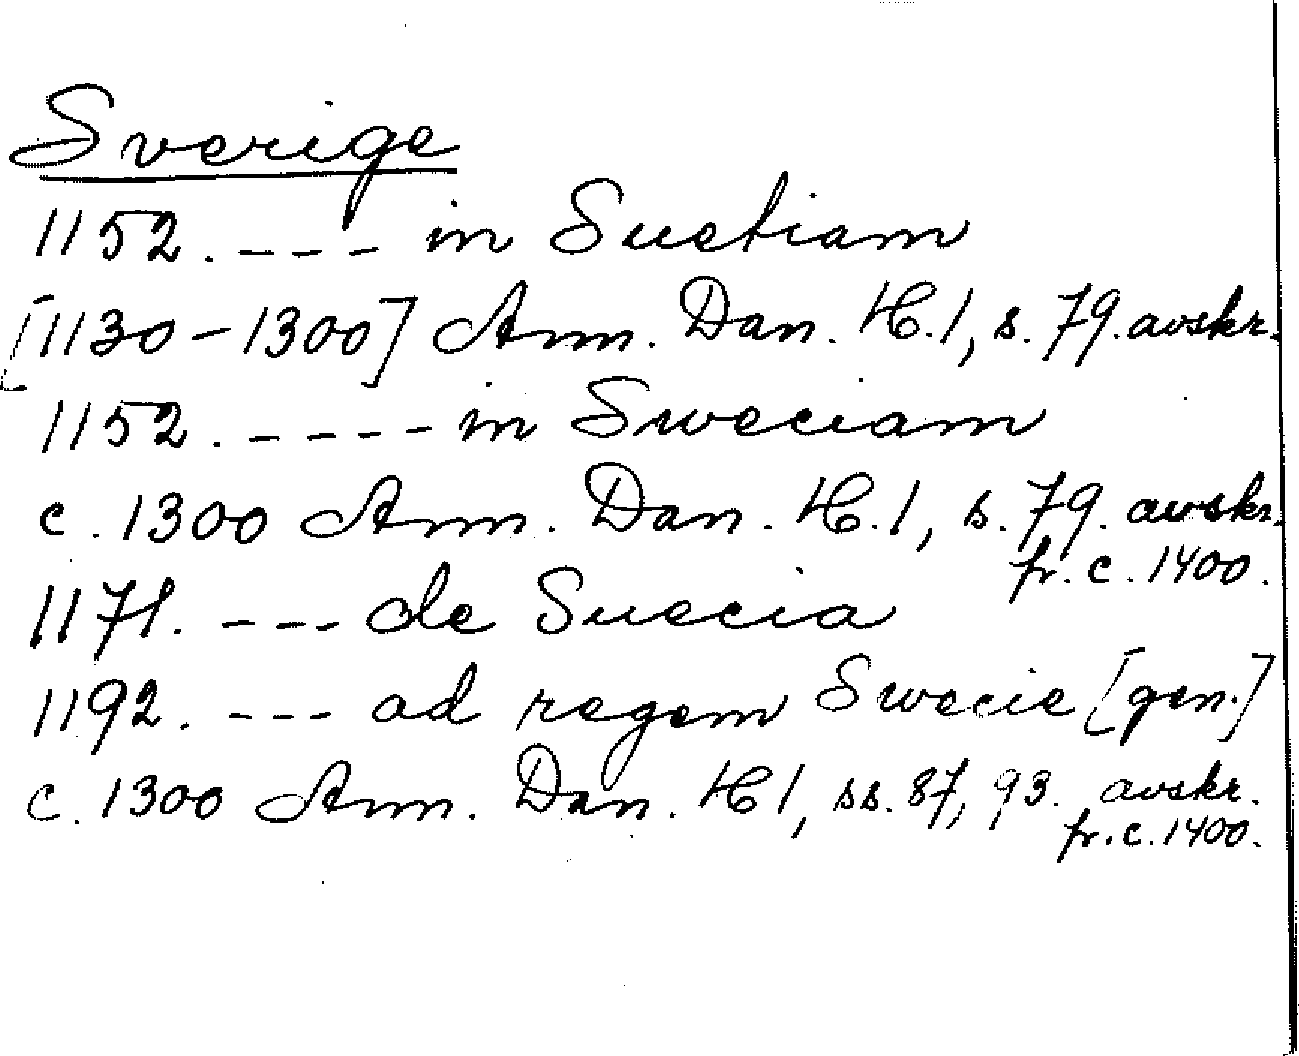 Sverige
1152. --- in Suetiam
[1130-1300] Ann. Dan. H. 1, s. 79. avskr.
1152. ---- in Sweciam
c. 1300 Ann. Dan. H. 1, s. 79. avskr.
fr. c. 1400.
1171. --- de Suecia
1192. --- ad regem Swecie [gen.]
c. 1300 Ann. Dan. H 1, ss. 87, 93. avskr.
fr. c. 1400.